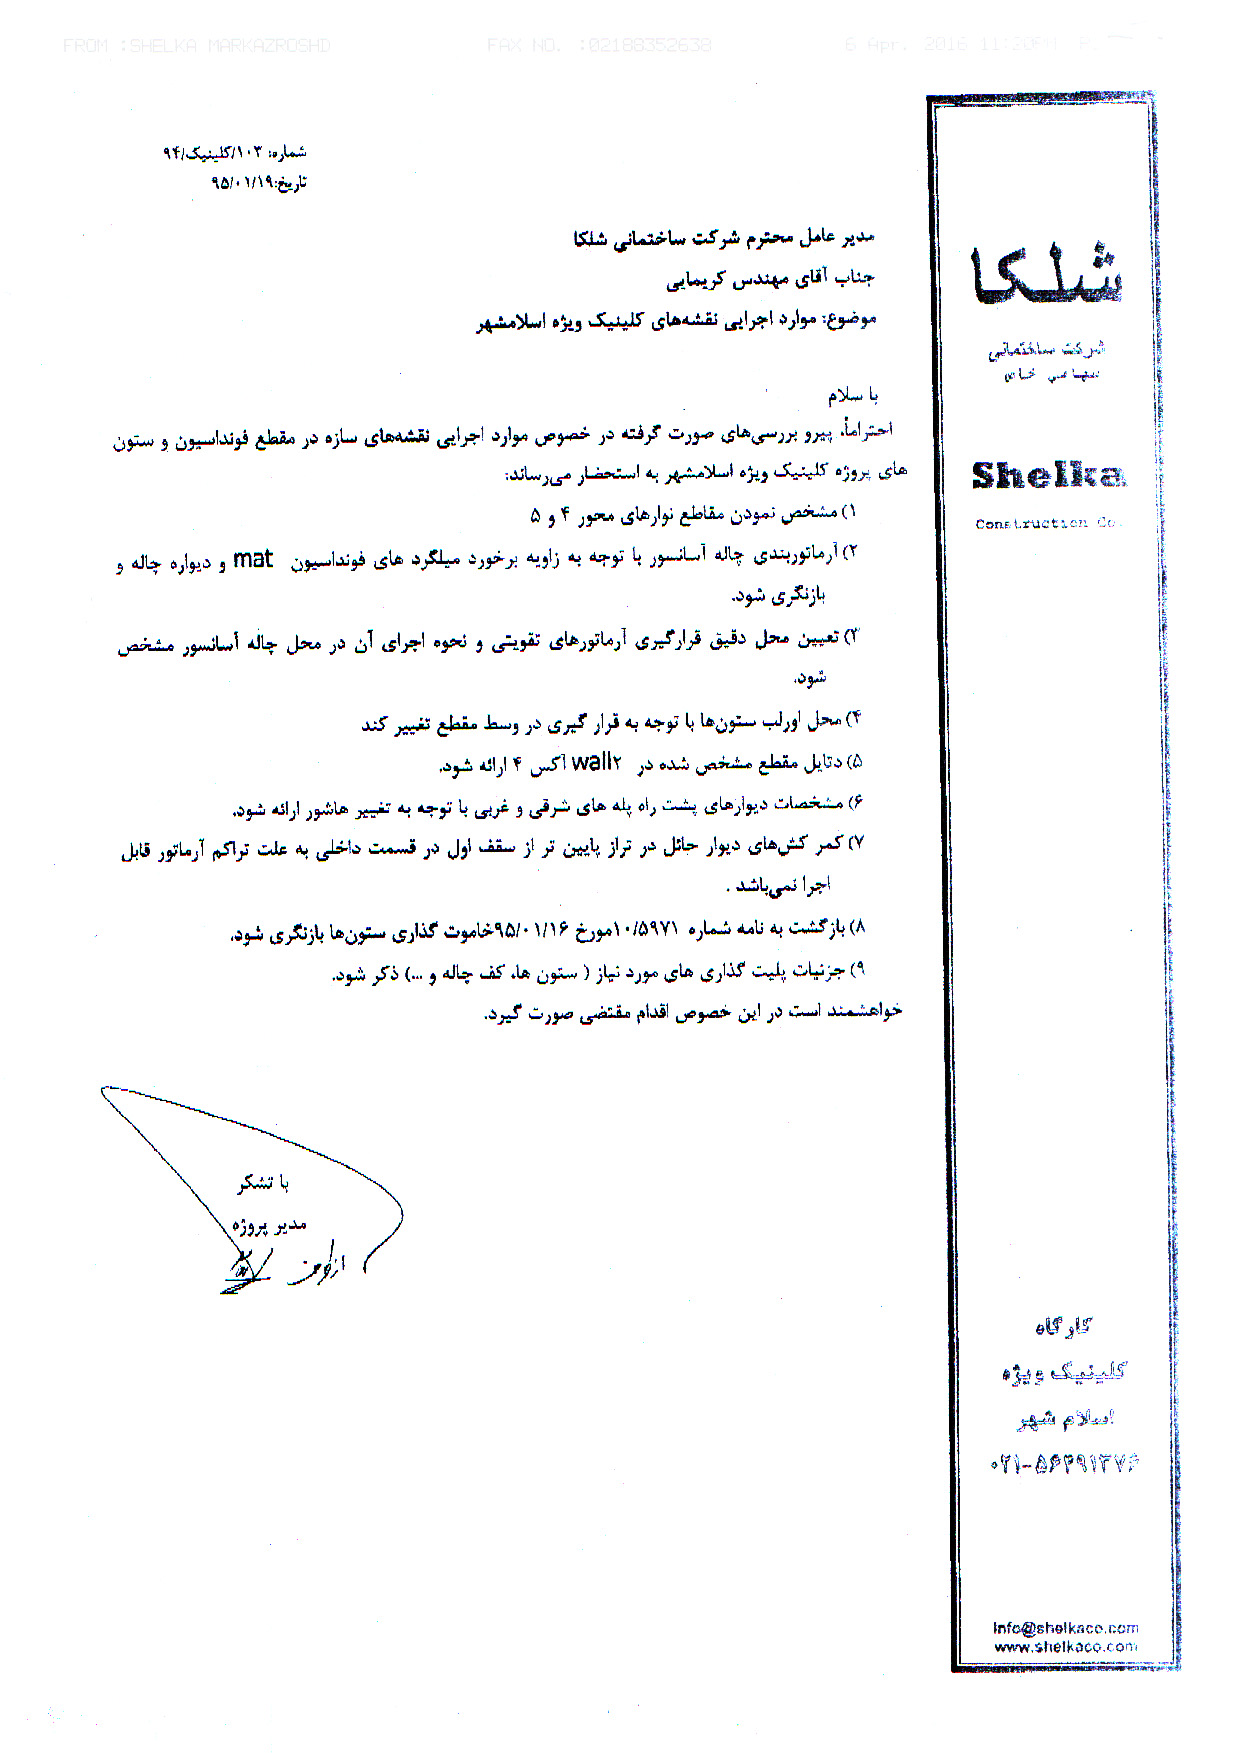 FROM :SHELKA MARKAZROSHD FAX NO. :02188352638 6 Apr. 2016 11:30PM
شماره: ۱۰۳/کلینیک/۹۴
تاریخ:۹۵/۰۱/۱۹
مدیر عامل محترم شرکت ساختمانی شلکا
جناب آقای مهندس کریمایی
موضوع: موارد اجرایی نقشه‌های کلینیک ویژه اسلامشهر
با سلام
احتراماً، پیرو بررسی‌های صورت گرفته در خصوص موارد اجرایی نقشه‌های سازه در مقطع فونداسیون و ستون
های پروژه کلینیک ویژه اسلامشهر به استحضار می‌رساند:
۱) مشخص نمودن مقاطع نوارهای محور ۴ و ۵
۲) آرماتوربندی چاله آسانسور با توجه به زاویه برخورد میلگرد های فونداسیون mat و دیواره چاله و
بازنگری شود.
۳) تعیین محل دقیق قرارگیری آرماتورهای تقویتی و نحوه اجرای آن در محل چاله آسانسور مشخص
شود.
۴) محل اورلب ستون‌ها با توجه به قرار گیری در وسط مقطع تغییر کند
۵) دتایل مقطع مشخص شده در wall۲ آکس ۴ ارائه شود.
۶) مشخصات دیوارهای پشت راه پله های شرقی و غربی با توجه به تغییر هاشور ارائه شود.
۷) کمر کش‌های دیوار حائل در تراز پایین تر از سقف اول در قسمت داخلی به علت تراکم آرماتور قابل
اجرا نمی‌باشد .
۸) بازگشت به نامه شماره ۱۰/۵۹۷۱مورخ ۹۵/۰۱/۱۶خاموت گذاری ستون‌ها بازنگری شود.
۹) جزئیات پلیت گذاری های مورد نیاز ( ستون ها، کف چاله و ...) ذکر شود.
خواهشمند است در این خصوص اقدام مقتضی صورت گیرد.
با تشکر
مدیر پروژه
شلکا
شرکت ساختمانی
سهامی خاص
Shelka
Construction Co.
کارگاه
کلینیک ویژه
اسلام شهر
۰۲۱-۵۶۴۹۱۳۷۶
info@shelkaco.com
www.shelkaco.com